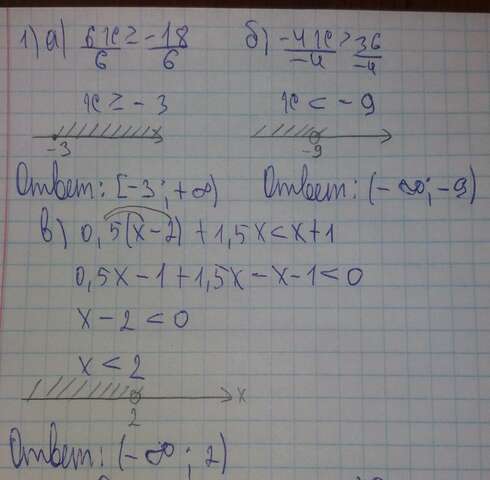 1) а) 6x/6 ≥ -18/6  б) -4x/-4 > 36/-4
x ≥ -3  x < -9
-3  -9
Ответ: [-3; +∞)  Ответ: (-∞; -9)
в) 0,5(x-2) + 1,5x < x+1
0,5x - 1 + 1,5x - x - 1 < 0
x - 2 < 0
x < 2
x
2
Ответ: (-∞; 2)